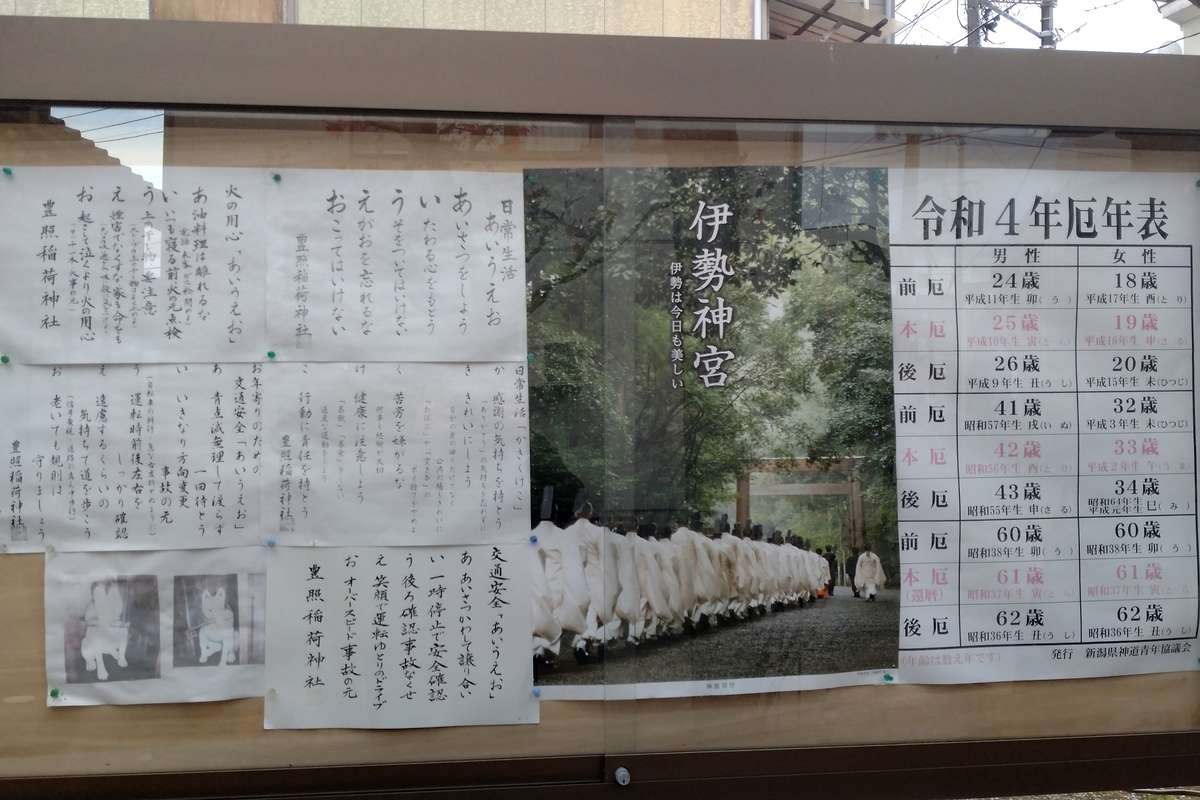 火の用心「あいうえお」
あ 油料理は離れるな
い いつも寝る前火の元点検
え
お 起こして泣くより火の用心
豊照稲荷神社
日常生活
あいうえお
あいさつをしよう
いたわる心をもとう
うそをついてはいけない
えがおを忘れるな
おこってはいけない
豊照稲荷神社
お年寄りのための
交通安全「あいうえお」
あ 青点滅無理して渡らず
一回待とう
い いきなり方向変更
事故の元
う 運転時前後左右を
しっかり確認
え 遠慮するくらいの
気持ちで道を歩こう
お 老いても規則は
守りましょう
豊照稲荷神社
日常生活「かきくけこ」
か 感謝の気持ちを持とう
き きれいにしよう
く 苦労を嫌がるな
け 健康に注意しよう
こ 行動に責任を持とう
豊照稲荷神社
交通安全「あいうえお」
あ あいさつかわして譲り合い
い 一時停止で安全確認
う 後ろ確認事故なくせ
え 笑顔で運転ゆとりのドライブ
お オーバースピード事故の元
豊照稲荷神社
伊勢神宮
伊勢は今日も美しい
令和4年厄年表
男性 女性
前厄 24歳 平成11年生 卯(う) 18歳 平成17年生 酉(とり)
本厄 25歳 平成10年生 寅(とら) 19歳 平成16年生 申(さる)
後厄 26歳 平成9年生 丑(うし) 20歳 平成15年生 未(ひつじ)
前厄 41歳 昭和57年生 戌(いぬ) 32歳 平成3年生 未(ひつじ)
本厄 42歳 昭和56年生 酉(とり) 33歳 平成2年生 午(うま)
後厄 43歳 昭和55年生 申(さる) 34歳 昭和64年生 平成元年生 巳(み)
前厄 60歳 昭和38年生 卯(う) 60歳 昭和38年生 卯(う)
本厄(還暦) 61歳 昭和37年生 寅(とら) 61歳 昭和37年生 寅(とら)
後厄 62歳 昭和36年生 丑(うし) 62歳 昭和36年生 丑(うし)
(年齢は数え年です) 発行 新潟県神道青年協議会